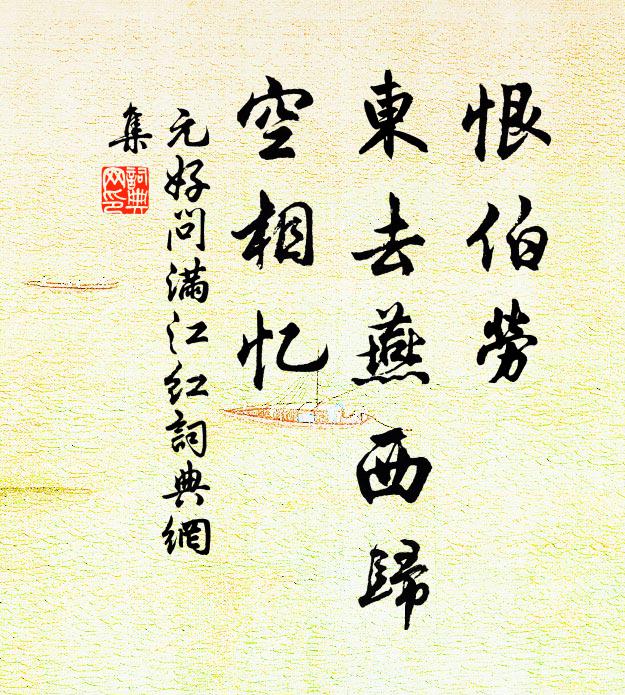 恨伯勞
東去燕西歸
空相忆
元好问满江红詞典網
集
詞典网印